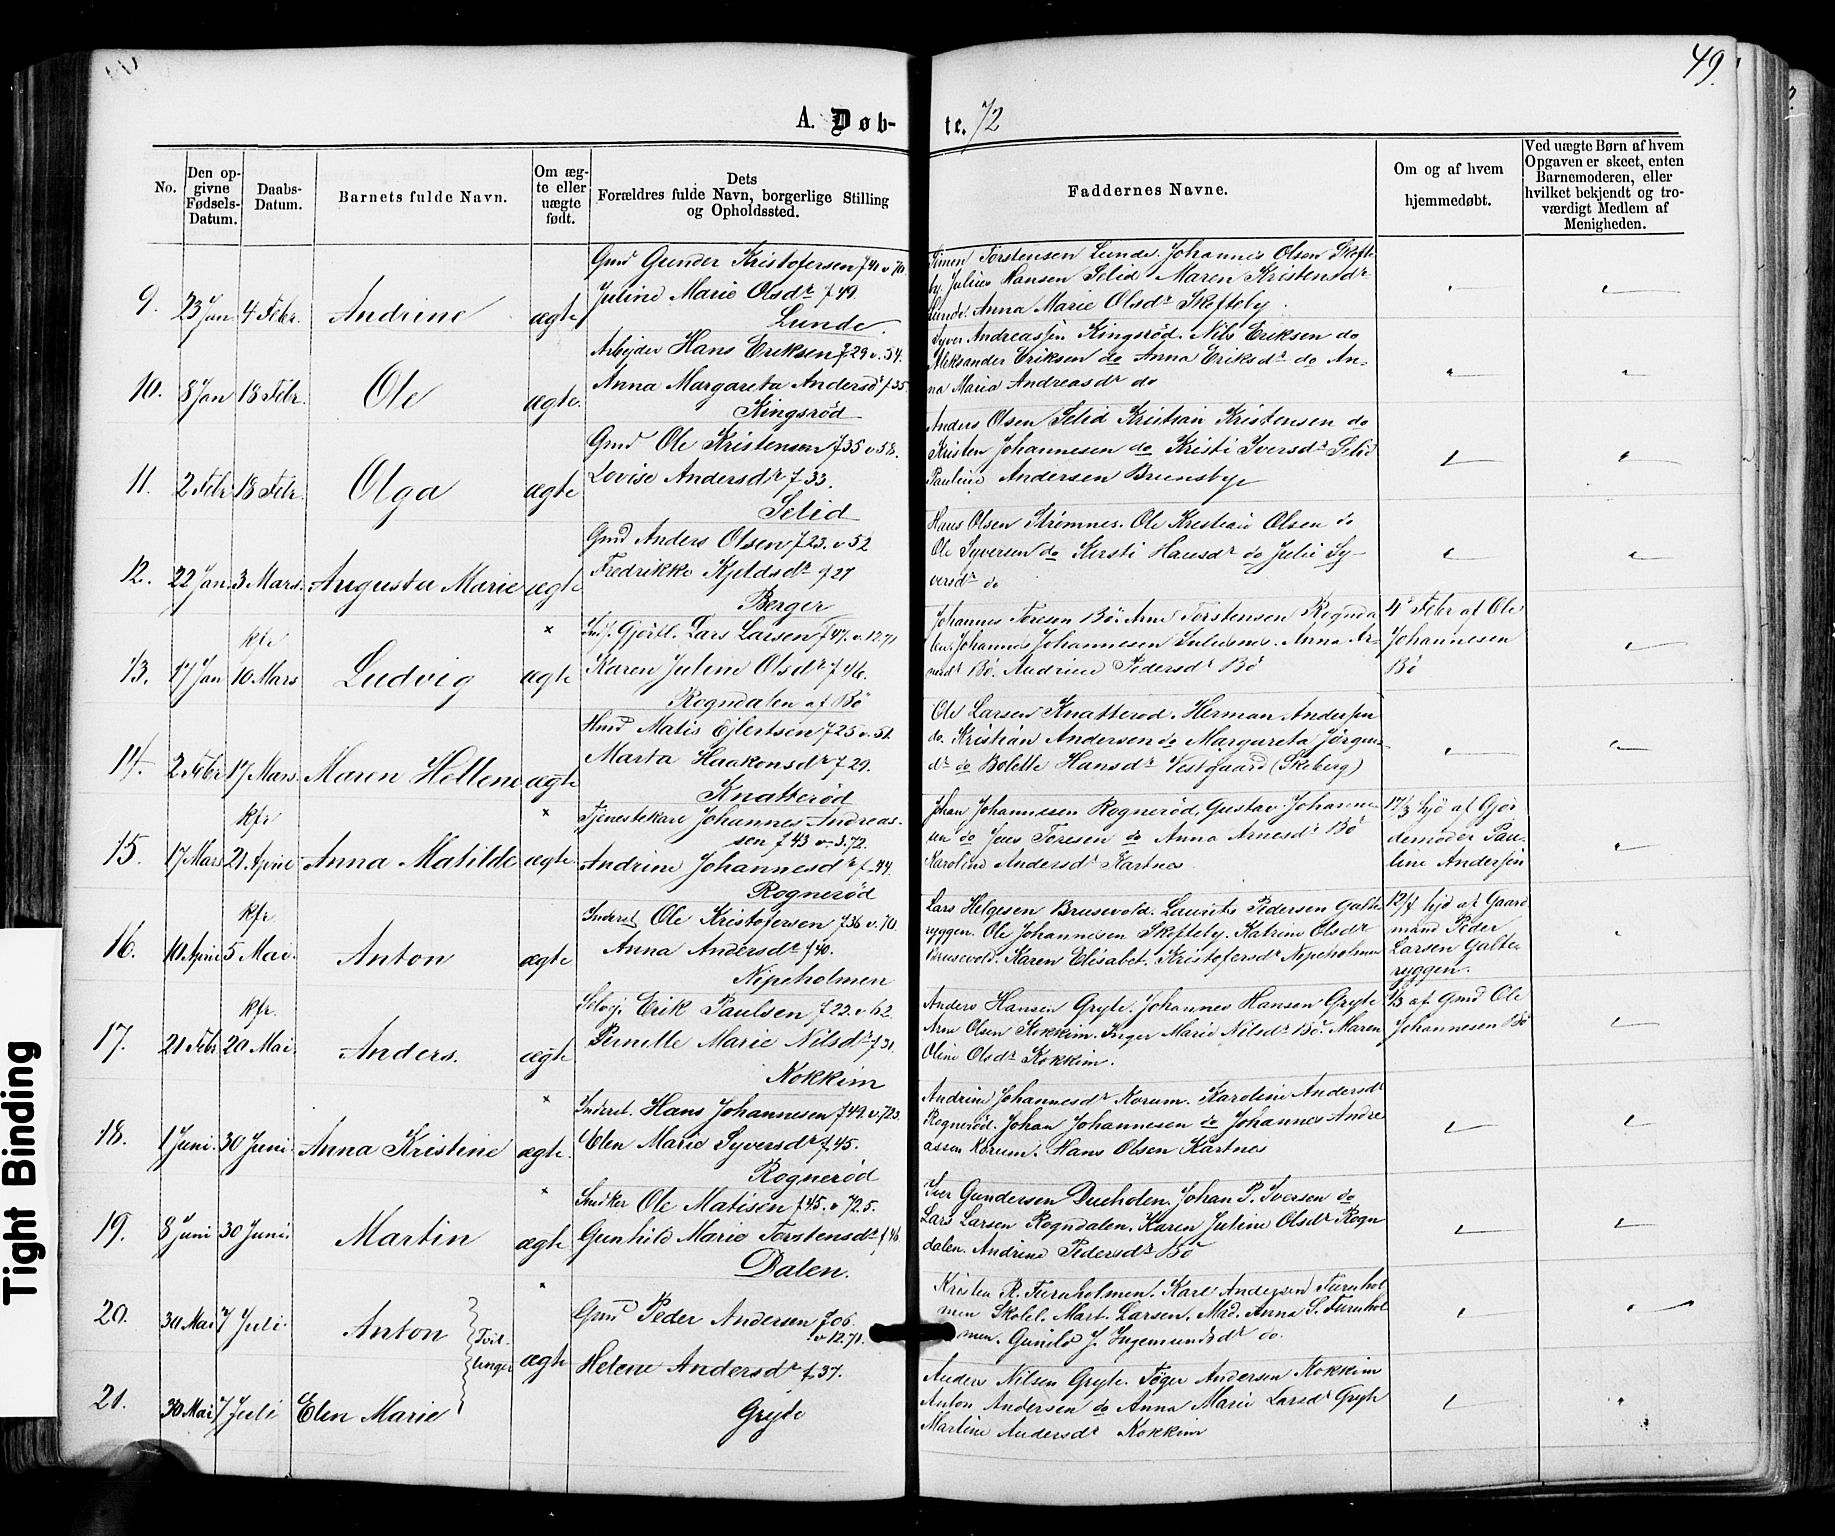 49.
A. Døb-te. 72
No.
Den opgivne Fødsels-Datum.
Daabs-Datum.
Barnets fulde Navn.
Om ægte eller uægte født.
Dets Forældres fulde Navn, borgerlige Stilling og Opholdssted.
Faddernes Navne.
Om og af hvem hjemmedøbt.
Ved uægte Børn af hvem Opgaven er skeet, enten Barnemoderen, eller hvilket bekjendt og troværdigt Medlem af Menigheden.
9. 23 Jan 4 Febr. Andrine ægte
Gmd Gunder Kristofersen f 41 v. 70.
Juline Marie Olsdr f 49.
Lunde.
Simen Torstensen Lunde. Johannes Olsen Skofte-
by. Julius Hansen Selid Maren Kristensdr
Lunde. Anna Marie Olsdr Skofteby.
10. 8 Jan 18 Febr. Ole ægte.
Arbeider Hans Eriksen f 29 v. 54.
Anna Margareta Andersdr f 35
Kingsrød
Syver Andreassen Kingsrød. Nils Eriksen do
Aleksander Eriksen do Anna Eriksdr do An-
na Maria Andreasdr do
11. 2 Febr 18 Febr. Olga ægte
Gmd Ole Kristensen f 35 v 58.
Lovise Andersdr f 33.
Selid
Anders Olsen Selid Kristian Kristensen do
Kristen Johannesen do Kristi Iversdr Selid
Pauline Andersen Brunsbye
12. 22 Jan. 3 Mars. Augusta Marie ægte
Gmd Anders Olsen f 23. v 52
Fredrikke Kjeldsdr f 27
Berger
Hans Olsen Strømnes. Ole Kristian Olsen do
Ole Syversen do Kersti Hansdr do Julie Sy-
versdr do
13. 17 Jan kfr 10 Mars Ludvig × ægte
Lars Larsen f 47. v. 12.71
Karen Juline Olsdr f 46.
Rogndalen af Bö
Johannes Toresen Bö. Arne Torstensen Rognda
len. Johannes Johannesen Anna Ar-
nesdr Bö. Andrine Pedersdr Bö
4 Febr af Ole
Johannesen
Bö
14. 2 Febr 17 Mars. Maren Hellene ægte
Hmd Matis Ejlertsen f 25 v. 51.
Marta Haakonsdr f 29.
Knatterød
Ole Larsen Knatterød. Herman Andersen
do. Kristian Andersen do Margareta Jørgens-
dr do Bolette Hansdr Vestgaard (Skeberg)
15. 17 Mars kfr 21. April Anna Matilde × ægte
Tjenestekarl Johannes Andreas-
sen f 43 v 3.72.
Andrine Johannesdr f 44.
Rognerød
Johan Johannesen Rognerød, Gustav Johanne-
sen do Jens Toresen do Anna Arnesdr Bö
Karoline Andersdr Kartnes
17/3 hjd af Gjor
demoder Pau-
line Andersen
16. 10 April kfr 5 Mai. Anton ægte
Inderst Ole Kristofersen f 36 v. 70.
Anna Andersdr f 40.
Nipeholmen
Lars Helgesen Brusevold. Laurits Pedersen Galte
ryggen. Ole Johannesen Skofteby. Katrine Olsdr
Brusevold. Karen Elisabet. Kristofersdr Nipeholmen
12/4 hjd af Gaard
mand Peder
Larsen Galte
ryggen.
17. 21 Febr kfr. 20 Mai. Anders. ægte
Selvej. Erik Paulsen f 22. v 62.
Pernille Marie Nilsdr f 31.
Kokkim
Anders Hansen Gryte. Johannes Hansen Gryte
Arne Olsen Kokkim. Inger Marie Nilsdr Bö. Maren
Oline Olsdr Kokkim.
1/3 af Gmd Ole
Johannesen Bö
18. 1 Juni. 30 Juni. Anna Kristine × ægte.
Inderst. Hans Johannesen f 49. v. 72.3.
Elen Marie Syversdr f 45.
Rognerød
Andrine Johannesdr Korum. Karoline Andersdr
Rognerød. Johan Johannesen do Johannes Andre
assen Korum. Hans Olsen Kartnes
19. 8 Juni 30 Juni. Martin × ægte
Snedker Ole Matisen f 45. v 72 5.
Gunhild Marie Torstensdr f 46
Dalen.
Iver Gundersen Dueholen. Johan P. Iversen do
Lars Larsen Rogndalen. Karen Juline Olsdr Rogn
dalen. Andrine Pedersdr Bö
20. 30 Mai 7 Juli. Anton Tvil-
linger × ægte
Gmd Peder Andersen f 06.
v 12.71.
Helene Andersdr f. 37.
Gryte
Kristen R. Furuholmen. Karl Andersen Furuhol
men Skolel. Mart. Larsen. Mad. Anna S. Furuhol
men. Gunild J. Ingemundsdr do.
21. 30 Mai 7 Juli Elen Marie
Anders Nilsen Gryte. Tøger Andersen Kokkim
Anton Andersen do Anna Marie Larsdr Gryte
Martine Andersdr Kokkim
Tight Binding